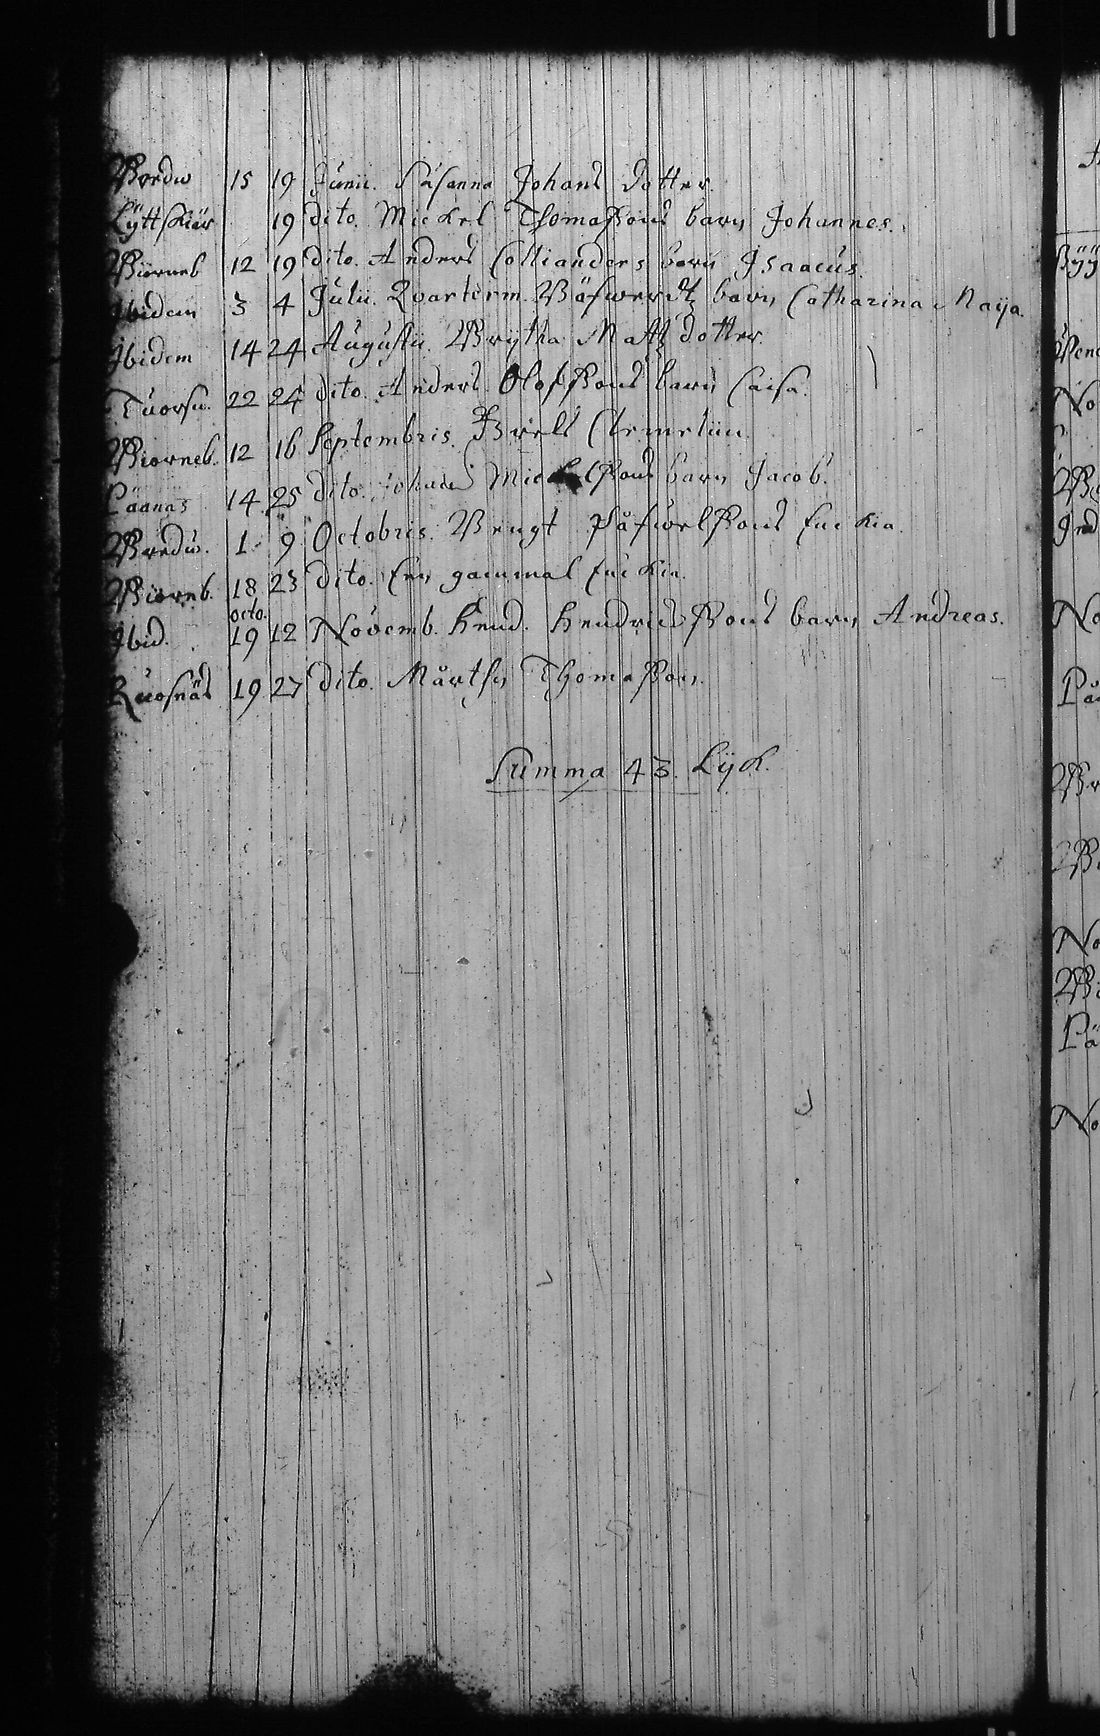 Bredw 15 19 Junii. Susanna Johans dotter.
Lyttskiär 19 dito. Mickel Thomassons barn Johannes.
Biörneb 12 19 dito. Anders Collianders barn Isaacus.
Ibidem 3 4 Julii. Qvarterm. barn Catharina Maija.
Ibidem 14 24 Augusti. Brytha Matz dotter.
Tuorsn. 22 24 dito. Anders Olofssons barn Caisa.
Biorneb. 12 16 Septembris.
14 25 dito. Johan Mickelssons barn Jacob.
Bredw. 1 9 Octobris. Bengt Påfwelssons Enckia.
Biorneb. 18 23 dito. En gammal Enckia.
Octo.
Ibid. 19 12 Novemb. Hend. Hendricssons barn Andreas.
Ruosnäs 19 27 dito. Mårthen Thomasson.
Summa 43. Lijk.